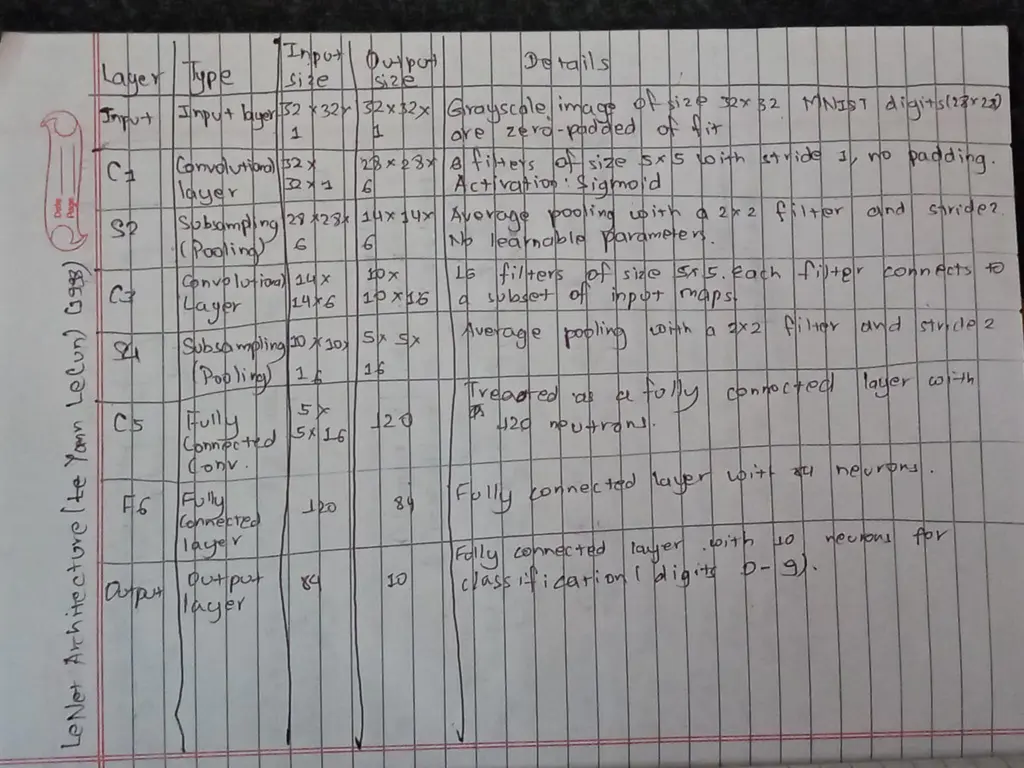 LeNet Architecture (te Yann LeCun) (1998)
Date
Page
Layer Type Input size Output size Details
Input Input layer 32 x 32 x 1 32 x 32 x 1 Grayscale image of size 32 x 32 MNIST digits (28 x 28)
are zero-padded of fit
C1 Convolutional layer 32 x 32 x 1 28 x 28 x 6 filters of size 5 x 5 with stride 1, no padding.
Activation: Sigmoid
S2 Subsampling (Pooling) 28 x 28 x 6 14 x 14 x 6 Average pooling with a 2 x 2 filter and stride 2.
No learnable parameters.
C3 Convolutional Layer 14 x 14 x 6 10 x 10 x 16 16 filters of size 5 x 5. each filter connects to
a subset of input maps.
S4 Subsampling (Pooling) 10 x 10 x 16 5 x 5 x 16 Average pooling with a 2 x 2 filter and stride 2
C5 Fully Connected Conv. 5 x 5 x 16 120 Treaded as a fully connected layer with
120 neutrans.
F6 Fully connected layer 120 84 Fully connected layer with 84 neurons.
Output Output layer 84 10 Fully connected layer with 10 neurons for
classification (digits 0-9).